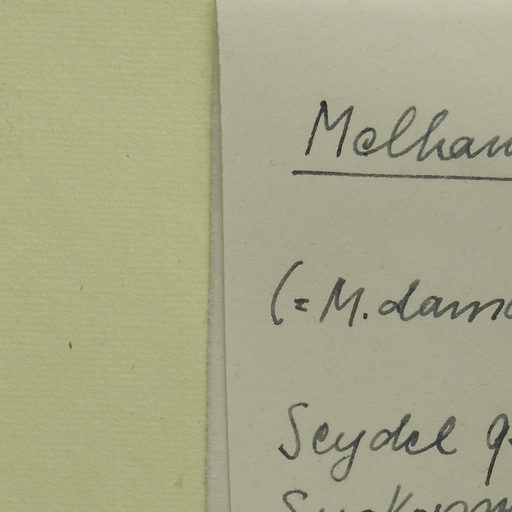 Melhan
(= M. dam
Seydel